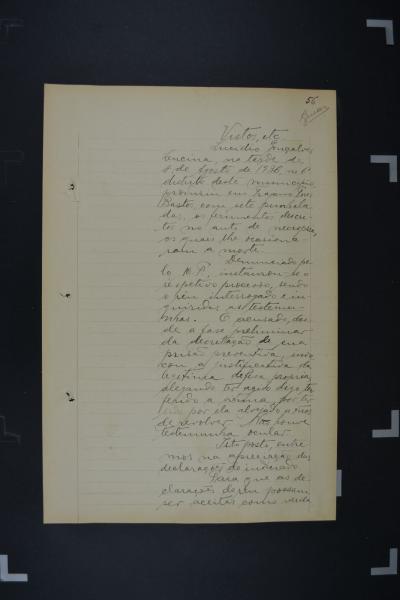 56
Vistos, etc
Lucidio Gonçalves
Encina, na tarde de
de Agosto de 1936, no 6º
districto deste municipio
produziu em
Bastos, com sete punhala-
das, os ferimentos descri-
tos no auto de necropsia,
os quaes lhe ocasiona-
ram a morte.
Denunciado pe-
lo M.P., instaurou-se o
respetivo processo, sendo
o réu interrogado e in-
quiridas as testemu-
nhas. O acusado, des-
de a fase preliminar
da decretação de sua
prisão preventiva, veio
com a justificativa da
legitima defesa propria,
alegando ter agido digo, ter
ferido a vitima, por ter
sido por ela alvejado a tiros
de revolver. Não houve
testemunha ocular.
Isto posto, entre-
mos na apreciação das
declarações do indiciado
Para que as de-
clarações do réu possam
ser aceitas como verda